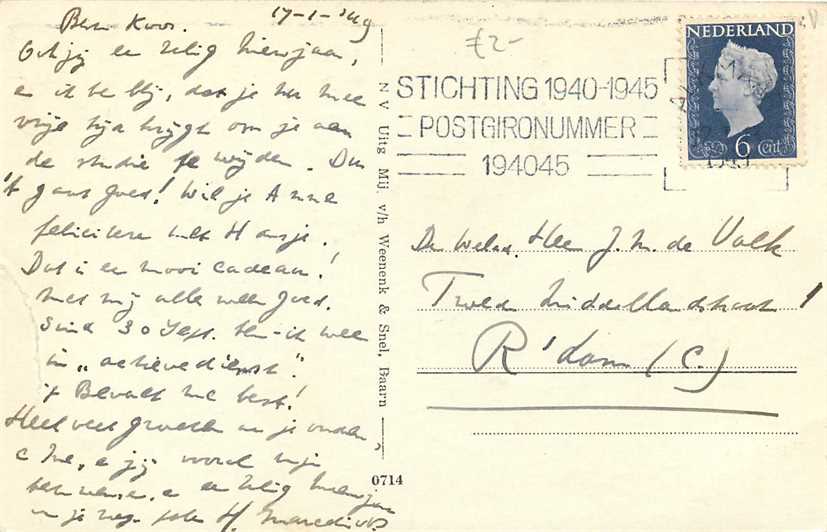 17-1-'49
Beste Koos.
Ook jij een zalig nieuwjaar,
en ik ben blij, dat je nu mee
vrije tijd krijgt om je aan
de studie te wijden. Dus
't gaat goed! Wil je Anne
feliciteren met Hansje.
Dat is een mooi cadeau!
Met mij alles weer goed.
Sinds 30 Sept. ben ik weer
in „actieve dienst".
't Bevalt me best!
Heel veel groeten aan je ouders,
en jij vooral mijn
beste wensen, en een zalig nieuwjaar
£2-
NEDERLAND
6 cent
STICHTING 1940-1945
POSTGIRONUMMER
194045
1949
N V Uitg Mij. v/h Weenenk & Snel, Baarn
0714
De Weled. Heer J. M. de Valk
Tweede Middellandstraat
R'dam (C.)